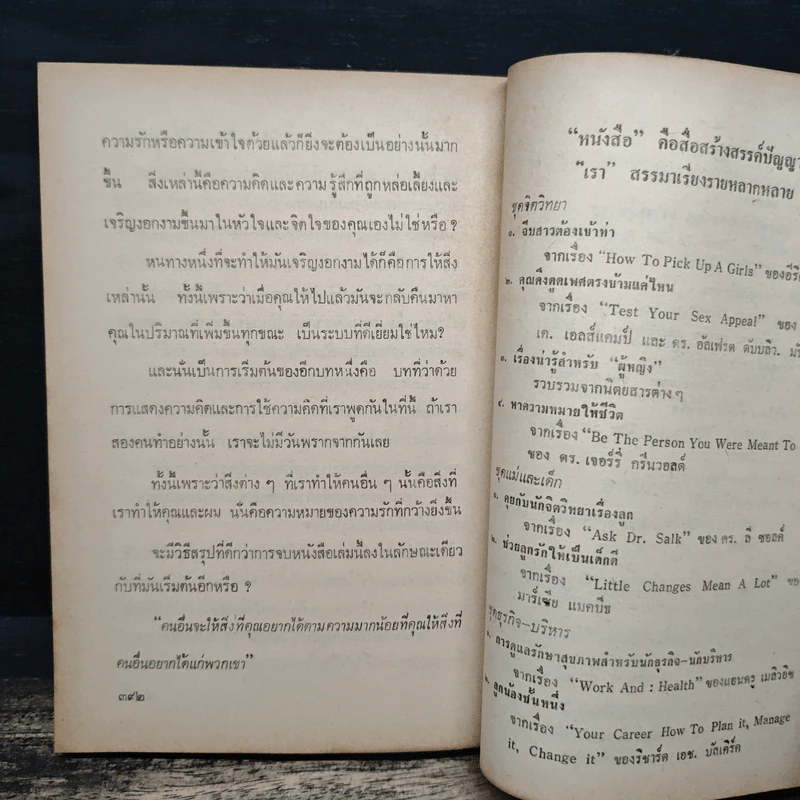 ความรักหรือความเข้าใจด้วยแล้วก็ยิ่งจะต้องเป็นอย่างนั้นมาก
ขึ้น สิ่งเหล่านี้คือความคิดและความรู้สึกที่ถูกหล่อเลี้ยงและ
เจริญงอกงามขึ้นมาในหัวใจและจิตใจของคุณเองไม่ใช่หรือ ?
หนทางหนึ่งที่จะทำให้มันเจริญงอกงามได้ก็คือการให้สิ่ง
เหล่านั้น ทั้งนี้เพราะว่าเมื่อคุณให้ไปแล้วมันจะกลับคืนมาหา
คุณในปริมาณที่เพิ่มขึ้นทุกขณะ เป็นระบบที่ดีเยี่ยมใช่ไหม?
และนั่นเป็นการเริ่มต้นของอีกบทหนึ่งคือ บทที่ว่าด้วย
การแสดงความคิดและการใช้ความคิดที่เราพูดกันในที่นี้ ถ้าเรา
สองคนทำอย่างนั้น เราจะไม่มีวันพรากจากกันเลย
ทั้งนี้เพราะว่าสิ่งต่าง ๆ ที่เราทำให้คนอื่น ๆ นั้นคือสิ่งที่
เราทำให้คุณและผม นั่นคือความหมายของความรักที่กว้างยิ่งขึ้น
จะมีวิธีสรุปที่ดีกว่าการจบหนังสือเล่มนี้ลงในลักษณะเดียว
กับที่มันเริ่มต้นอีกหรือ ?
“คนอื่นจะให้สิ่งที่คุณอยากได้ตามความมากน้อยที่คุณให้สิ่งที่
คนอื่นอยากได้แก่พวกเขา”
๓๙๒
“หนังสือ” คือสื่อสร้างสรรค์ปัญญา
“เรา” สรรมาเรียงรายหลากหลาย
ชุดจิตวิทยา
๑. จีบสาวต้องเข้าท่า
จากเรื่อง “How To Pick Up A Girls” ของอีริค
๒. คุณดึงดูดเพศตรงข้ามแค่ไหน
จากเรื่อง “Test Your Sex Appeal” ของ
เค. เอลส์แคมป์ และ ดร. อัลเฟรด ดับบลิว.
๓. เรื่องน่ารู้สำหรับ “ผู้หญิง”
รวบรวมจากนิตยสารต่างๆ
๔. หาความหมายให้ชีวิต
จากเรื่อง “Be The Person You Were Meant To
ของ ดร. เจอร์รี่ กรีนวอลด์
ชุดแม่และเด็ก
๑. คุยกับนักจิตวิทยาเรื่องลูก
จากเรื่อง “Ask Dr. Salk” ของ ดร. ลี ซอลค์
๒. ช่วยลูกรักให้เป็นเด็กดี
จากเรื่อง “Little Changes Mean A Lot” ของ
มาร์เซีย แมคบีช
ชุดธุรกิจ–บริหาร
๑. การดูแลรักษาสุขภาพสำหรับนักธุรกิจ–นักบริหาร
จากเรื่อง “Work And : Health” ของแอนดรู เมลิวอิช
๒. ลูกน้องชั้นหนึ่ง
จากเรื่อง “Your Career How To Plan it, Manage
it, Change it” ของริชาร์ด เอช. บัสเคิร์ค